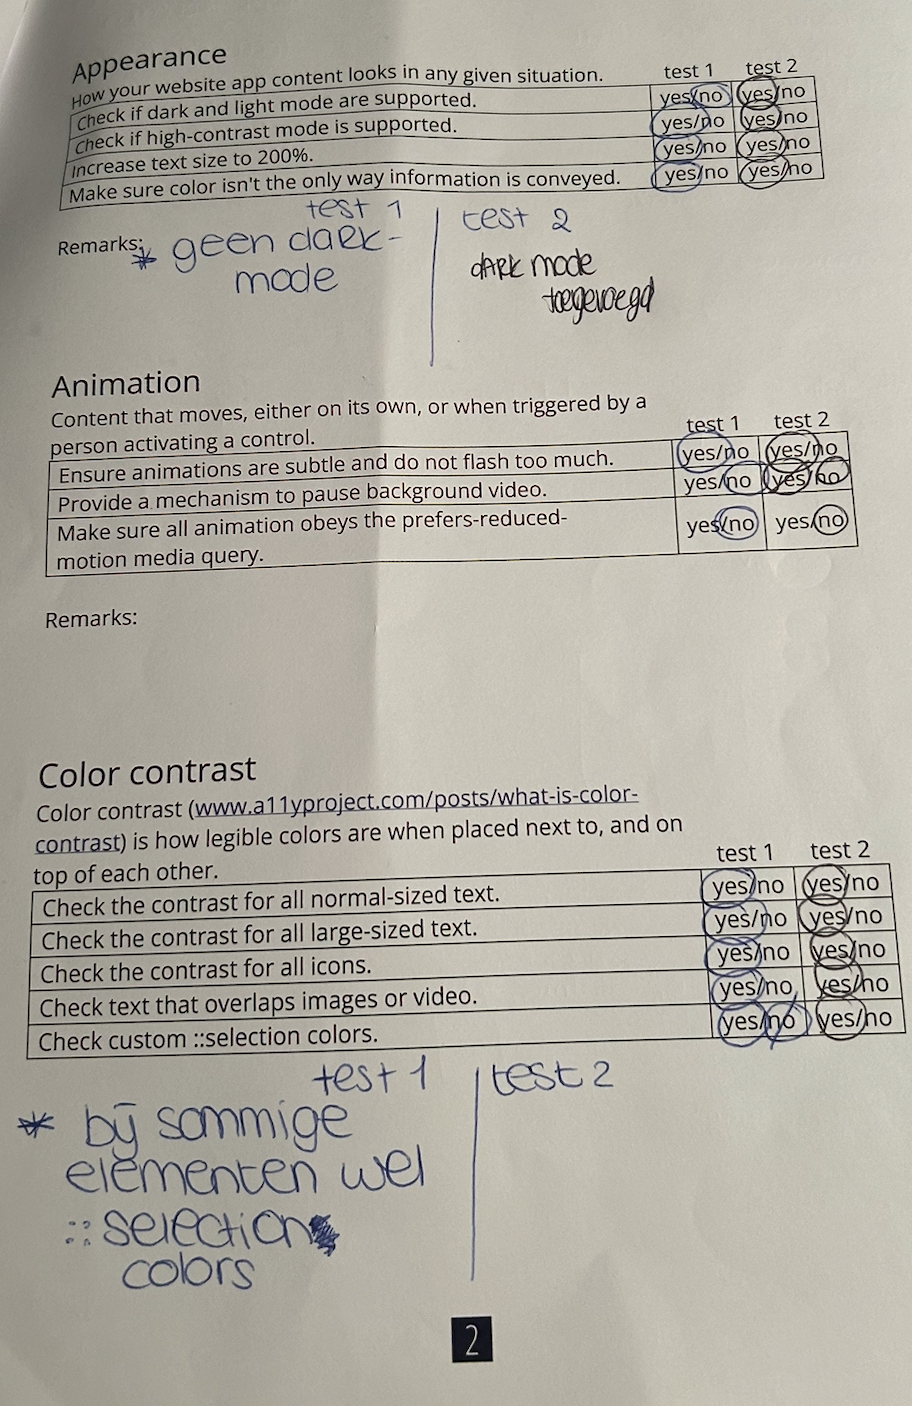 Appearance
How your website app content looks in any given situation. test 1 test 2
Check if dark and light mode are supported. yes/no yes/no
Check if high-contrast mode is supported. yes/no yes/no
Increase text size to 200%. yes/no yes/no
Make sure color isn't the only way information is conveyed. yes/no yes/no
test 1 test 2
Remarks: * geen dark-
mode
dark mode
toegevoegd
Animation
Content that moves, either on its own, or when triggered by a
person activating a control. test 1 test 2
Ensure animations are subtle and do not flash too much. yes/no yes/no
Provide a mechanism to pause background video. yes/no yes/no
Make sure all animation obeys the prefers-reduced- yes/no yes/no
motion media query.
Remarks:
Color contrast
Color contrast (www.a11yproject.com/posts/what-is-color-
contrast) is how legible colors are when placed next to, and on
top of each other. test 1 test 2
Check the contrast for all normal-sized text. yes/no yes/no
Check the contrast for all large-sized text. yes/no yes/no
Check the contrast for all icons. yes/no yes/no
Check text that overlaps images or video. yes/no yes/no
Check custom ::selection colors. yes/no yes/no
test 1 test 2
* bij sommige
elementen wel
::selection
colors
2